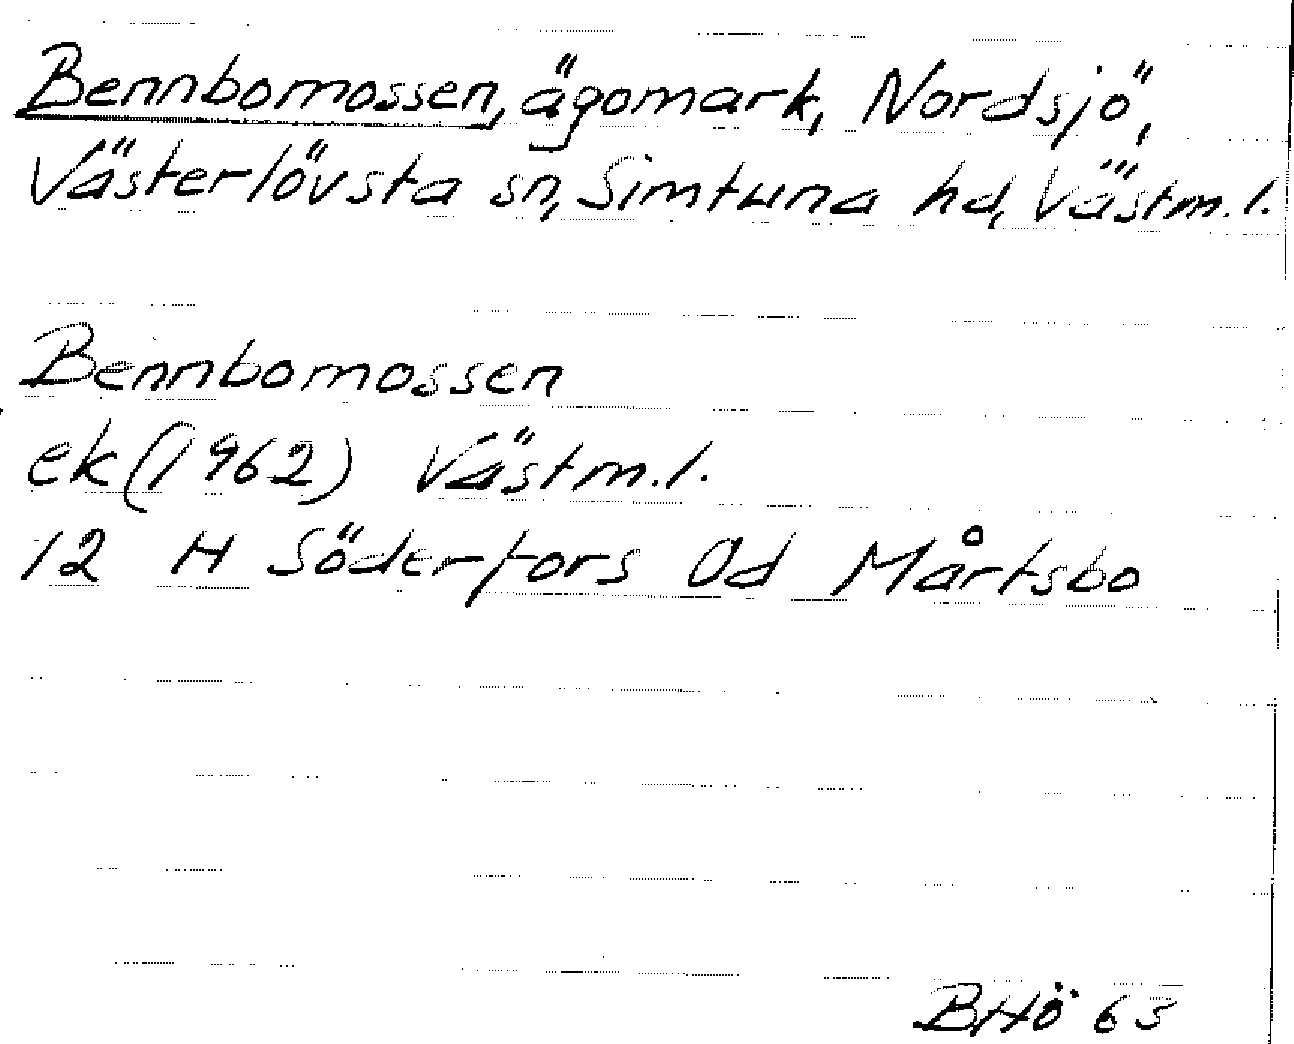 Bennbomossen, ägomark, Nordsjö,
Västerlövsta sn, Simtuna hd, Västm.l.
Bennbomossen
ek (1962) Västm.l.
12 H Söderfors 0d Mårtsbo
BHö 63